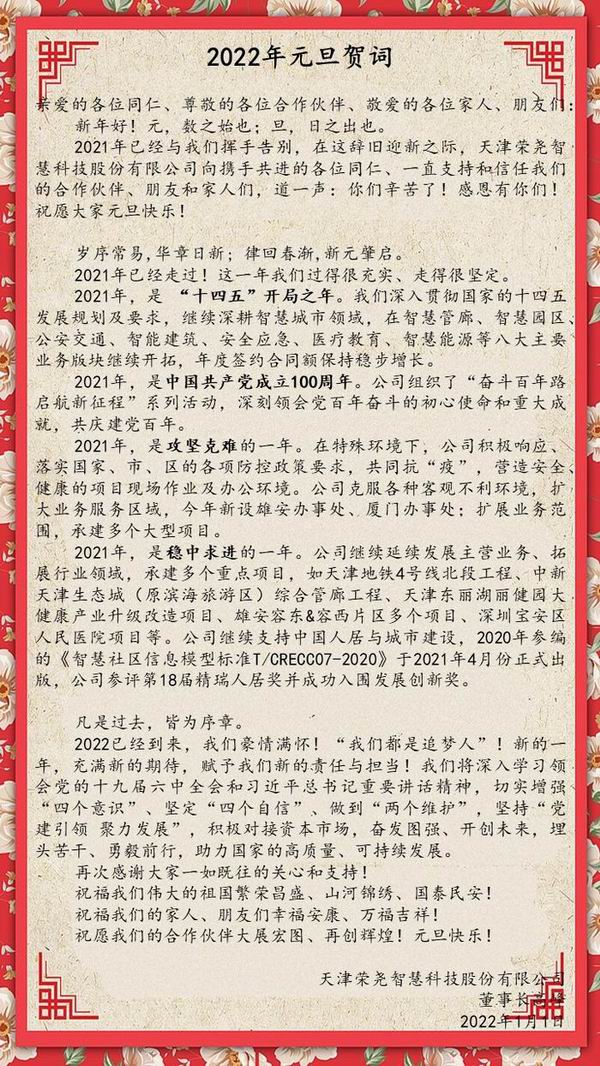 2022年元旦贺词
亲爱的各位同仁、尊敬的各位合作伙伴、敬爱的各位家人、朋友们:
新年好！元，数之始也；旦，日之出也。
2021年已经与我们挥手告别，在这辞旧迎新之际，天津荣尧智
慧科技股份有限公司向携手共进的各位同仁、一直支持和信任我们
的合作伙伴、朋友和家人们，道一声：你们辛苦了！感恩有你们！
祝愿大家元旦快乐！
岁序常易,华章日新；律回春渐,新元肇启。
2021年已经走过！这一年我们过得很充实、走得很坚定。
2021年，是 “十四五”开局之年。我们深入贯彻国家的十四五
发展规划及要求，继续深耕智慧城市领域，在智慧管廊、智慧园区、
公安交通、智能建筑、安全应急、医疗教育、智慧能源等八大主要
业务版块继续开拓，年度签约合同额保持稳步增长。
2021年，是中国共产党成立100周年。公司组织了“奋斗百年路
启航新征程”系列活动，深刻领会党百年奋斗的初心使命和重大成
就，共庆建党百年。
2021年，是攻坚克难的一年。在特殊环境下，公司积极响应、
落实国家、市、区的各项防控政策要求，共同抗“疫”，营造安全、
健康的项目现场作业及办公环境。公司克服各种客观不利环境，扩
大业务服务区域，今年新设雄安办事处、厦门办事处；扩展业务范
围，承建多个大型项目。
2021年，是稳中求进的一年。公司继续延续发展主营业务、拓
展行业领域，承建多个重点项目，如天津地铁4号线北段工程、中新
天津生态城（原滨海旅游区）综合管廊工程、天津东丽湖丽健园大
健康产业升级改造项目、雄安容东&容西片区多个项目、深圳宝安区
人民医院项目等。公司继续支持中国人居与城市建设，2020年参编
的《智慧社区信息模型标准T/CRECC07-2020》于2021年4月份正式出
版，公司参评第18届精瑞人居奖并成功入围发展创新奖。
凡是过去，皆为序章。
2022已经到来，我们豪情满怀！“我们都是追梦人”！新的一
年，充满新的期待，赋予我们新的责任与担当！我们将深入学习领
会党的十九届六中全会和习近平总书记重要讲话精神，切实增强
“四个意识”、坚定“四个自信”、做到“两个维护”，坚持“党
建引领 聚力发展”，积极对接资本市场，奋发图强、开创未来，埋
头苦干、勇毅前行，助力国家的高质量、可持续发展。
再次感谢大家一如既往的关心和支持！
祝福我们伟大的祖国繁荣昌盛、山河锦绣、国泰民安！
祝福我们的家人、朋友们幸福安康、万福吉祥！
祝愿我们的合作伙伴大展宏图、再创辉煌！元旦快乐！
天津荣尧智慧科技股份有限公司
董事长
2022年1月1日